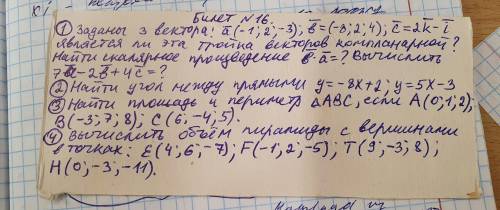 Билет №16.
① Заданы 3 вектора: a̅(-1; 2; -3); b̅=(-8; 2; 4); c̅=2k̅-i̅
Является ли эта тройка векторов компланарной?
Найти скалярное произведение b̅·a̅=? Вычислить
7a̅-2b̅+4c̅=?
② Найти угол между прямыми y=-8x+2; y=5x-3
③ Найти площадь и периметр ΔABC, если A(0; 1; 2);
B(-3; 7; 8); C(6; -4; 5).
④ Вычислить объём пирамиды с вершинами
в точках: E(4; 6; -7); F(-1; 2; -5); T(9; -3; 8);
H(0; -3; -11).